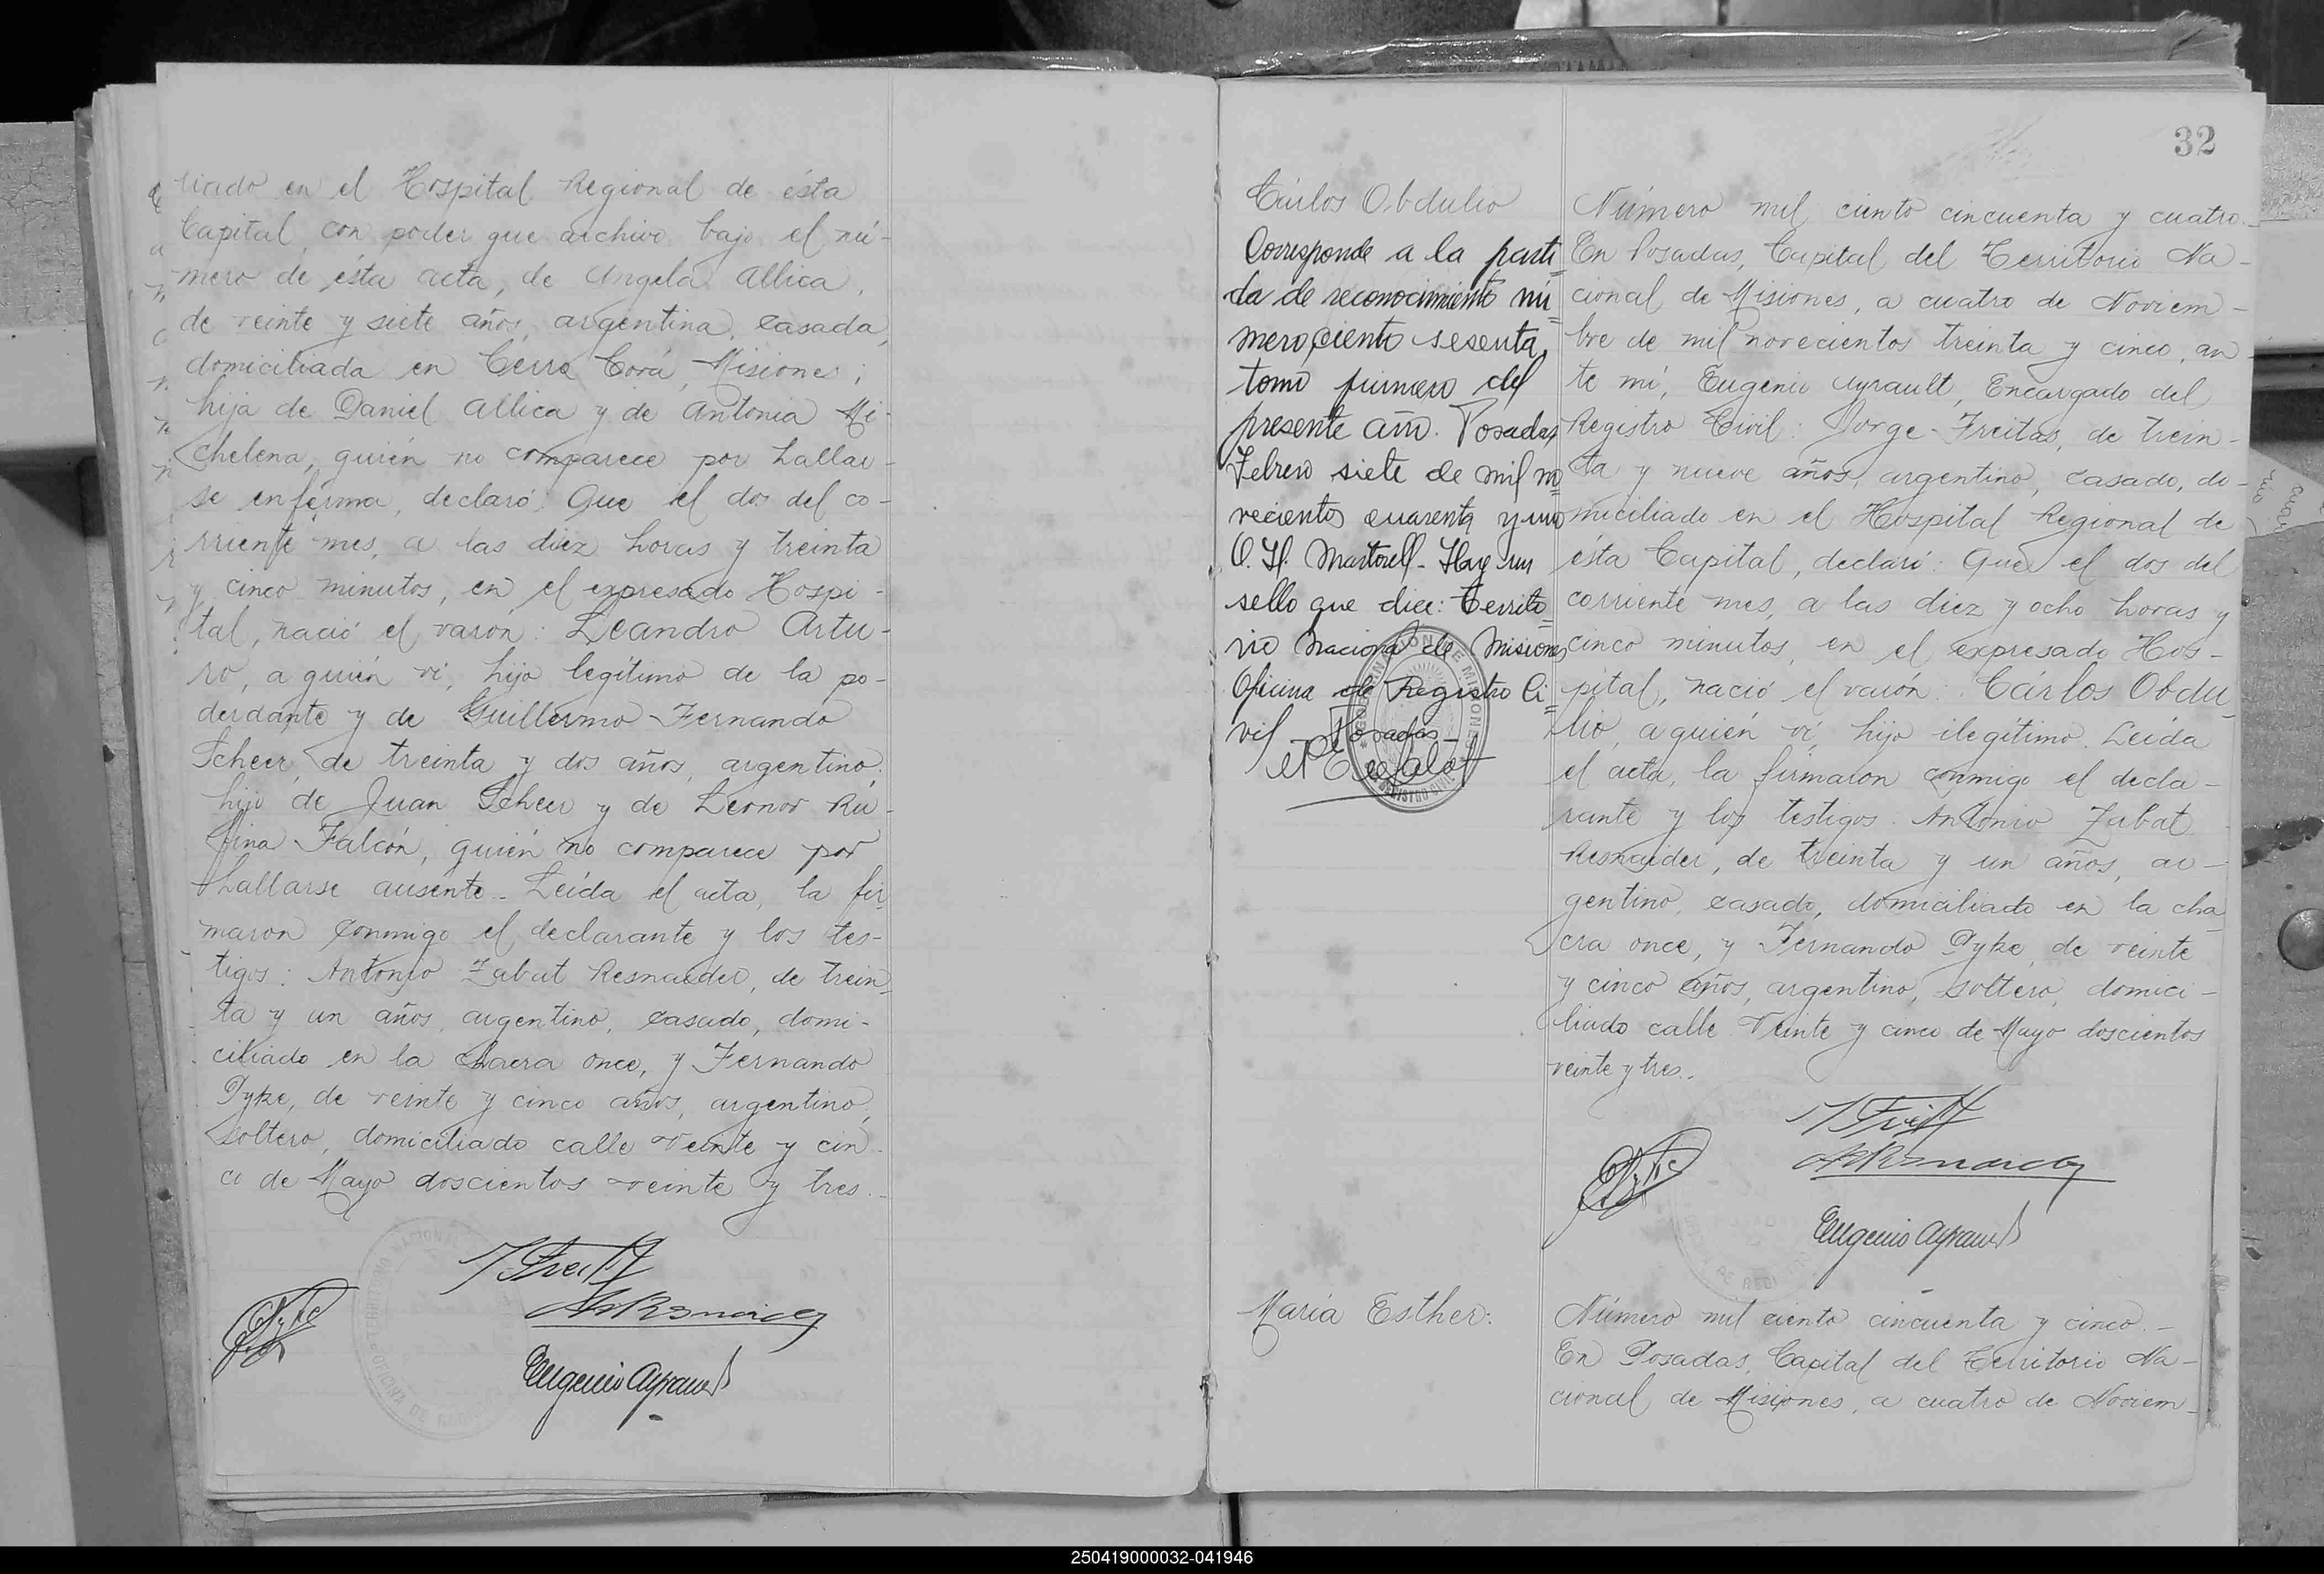 liado en el Hospital Regional de ésta
Capital, con poder que archivo bajo el nú-
mero de ésta acta, de Angela Allica,
de veinte y siete años, argentina, casada,
domiciliada en Cerro Corá, Misiones;
hija de Daniel Allica y de Antonia Mi-
chelena, quién no comparece por hallar-
se enferma, declaró: Que el dos del co-
rriente mes, a las diez horas y treinta
y cinco minutos, en el expresado Hospi-
tal, nació el varón: Leandro Artu-
ro, a quién ví, hijo legítimo de la po-
derdante y de Guillermo Fernando
Scheer, de treinta y dos años, argentino,
hijo de Juan Scheer y de Leonor Ru-
fina Falcón, quién no comparece por
hallarse ausente. Leída el acta, la fir-
maron conmigo el declarante y los tes-
tigos: Antonio Zabat Resnaider, de trein-
ta y un años, argentino, casado, domi-
ciliado en la chacra once, y Fernando
Dyke, de veinte y cinco años, argentino,
soltero, domiciliado calle Veinte y cin-
co de Mayo doscientos veinte y tres.-
Eugenio Ayrault
32
Cárlos Obdulio
Corresponde a la parti=
da de reconocimiento nú=
mero ciento sesenta,
tomo primero del
presente año. Posadas,
Febrero siete de mil no=
vecientos cuarenta y uno
O. H. Martorell - Hay un
sello que dice: Territo=
rio Nacional de Misiones
Oficina de Registro Ci=
vil Posadas -
GOBERNACION DE MISIONES
REGISTRO CIVIL
Número mil ciento cincuenta y cuatro.-
En Posadas, Capital del Territorio Na-
cional de Misiones, a cuatro de Noviem-
bre de mil novecientos treinta y cinco, an-
te mí, Eugenio Ayrault, Encargado del
Registro Civil: Jorge Freitas, de trein-
ta y nueve años, argentino, casado, do-
miciliado en el Hospital Regional de
ésta Capital, declaró: Que el dos del
corriente mes, a las diez y ocho horas y
cinco minutos, en el expresado Hos-
pital, nació el varón: Cárlos Obdu-
lio, a quién ví, hijo ilegítimo. Leída
el acta, la firmaron conmigo el decla-
rante y los testigos: Antonio Zabat
Resnaider, de treinta y un años, ar-
gentino, casado, domiciliado en la cha-
cra once, y Fernando Dyke, de veinte
y cinco años, argentino, soltero, domici-
liado calle Veinte y cinco de Mayo doscientos
veinte y tres.-
Eugenio Ayrault
María Esther:
Número mil ciento cincuenta y cinco.-
En Posadas, Capital del Territorio Na-
cional de Misiones, a cuatro de Noviem-
250419000032-041946